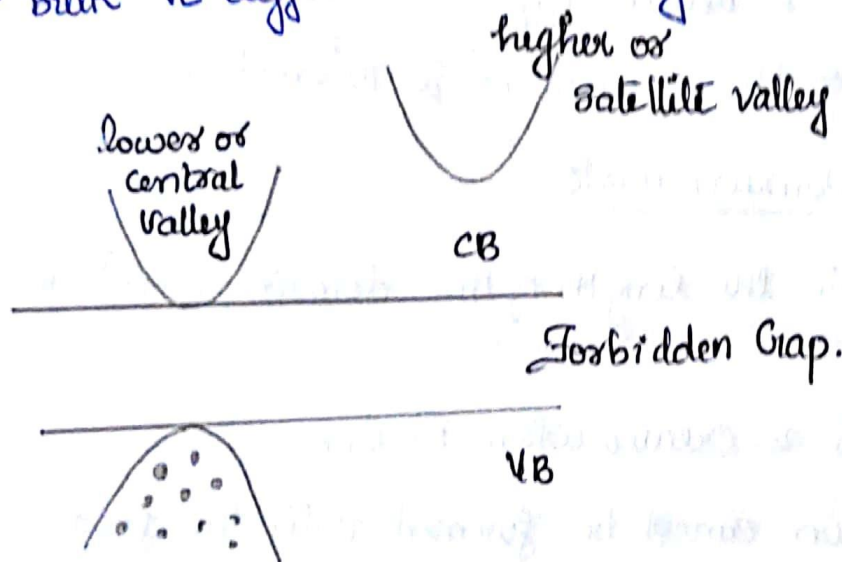 higher or
satellite valley
lower or
central
valley
CB
Forbidden Gap.
VB